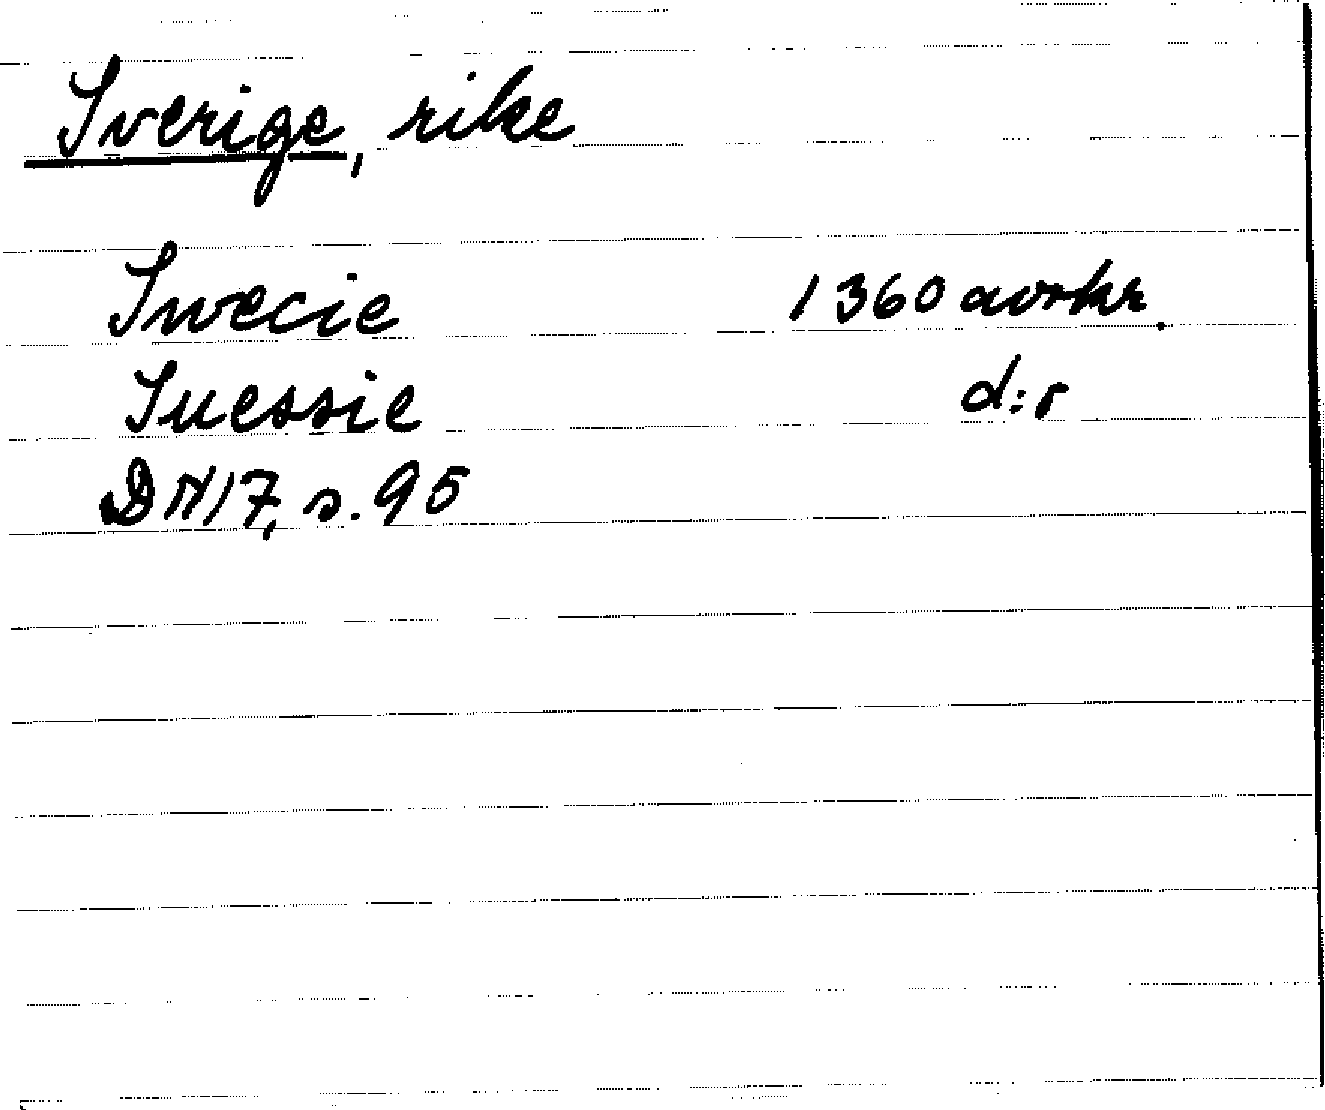 Sverige, rike
Swecie 1360 avskr.
Suessie d:o
DN17, s. 95